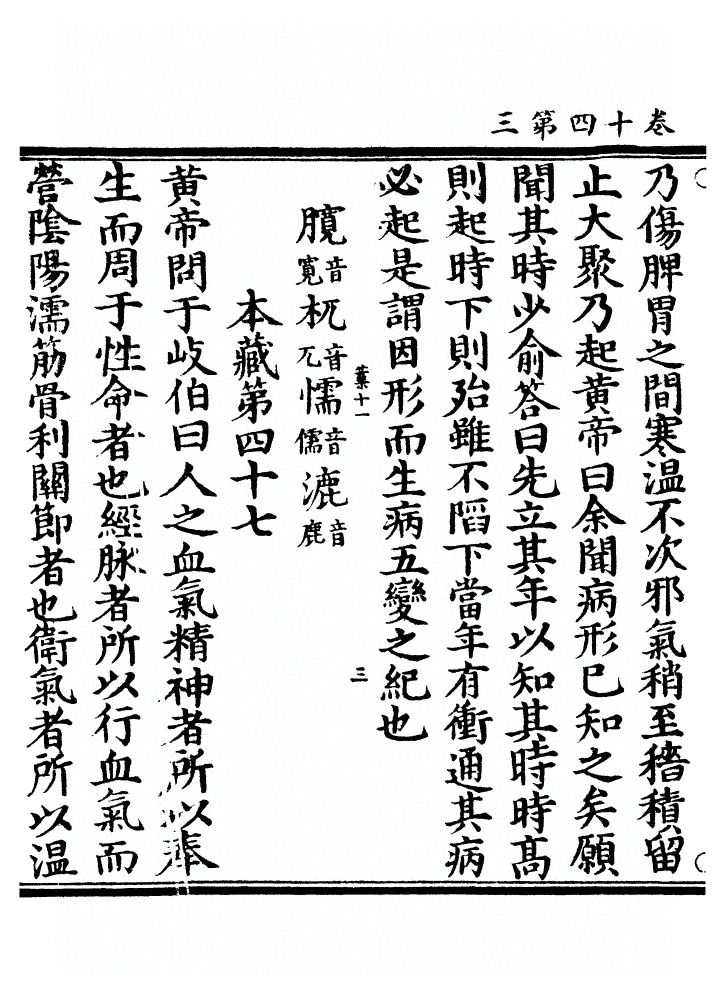 卷十四第三
乃傷脾胃之間寒溫不次邪氣稍至稸積留
止大聚乃起黃帝曰余聞病形已知之矣願
聞其時少俞荅曰先立其年以知其時時高
則起時下則殆雖不陷下當年有衝通其病
必起是謂因形而生病五變之紀也
葉十一
三
臗音寬杌音兀懦音儒漉音鹿
本藏第四十七
黃帝問于岐伯曰人之血氣精神者所以奉
生而周于性命者也經脉者所以行血氣而
營陰陽濡筋骨利關節者也衛氣者所以溫